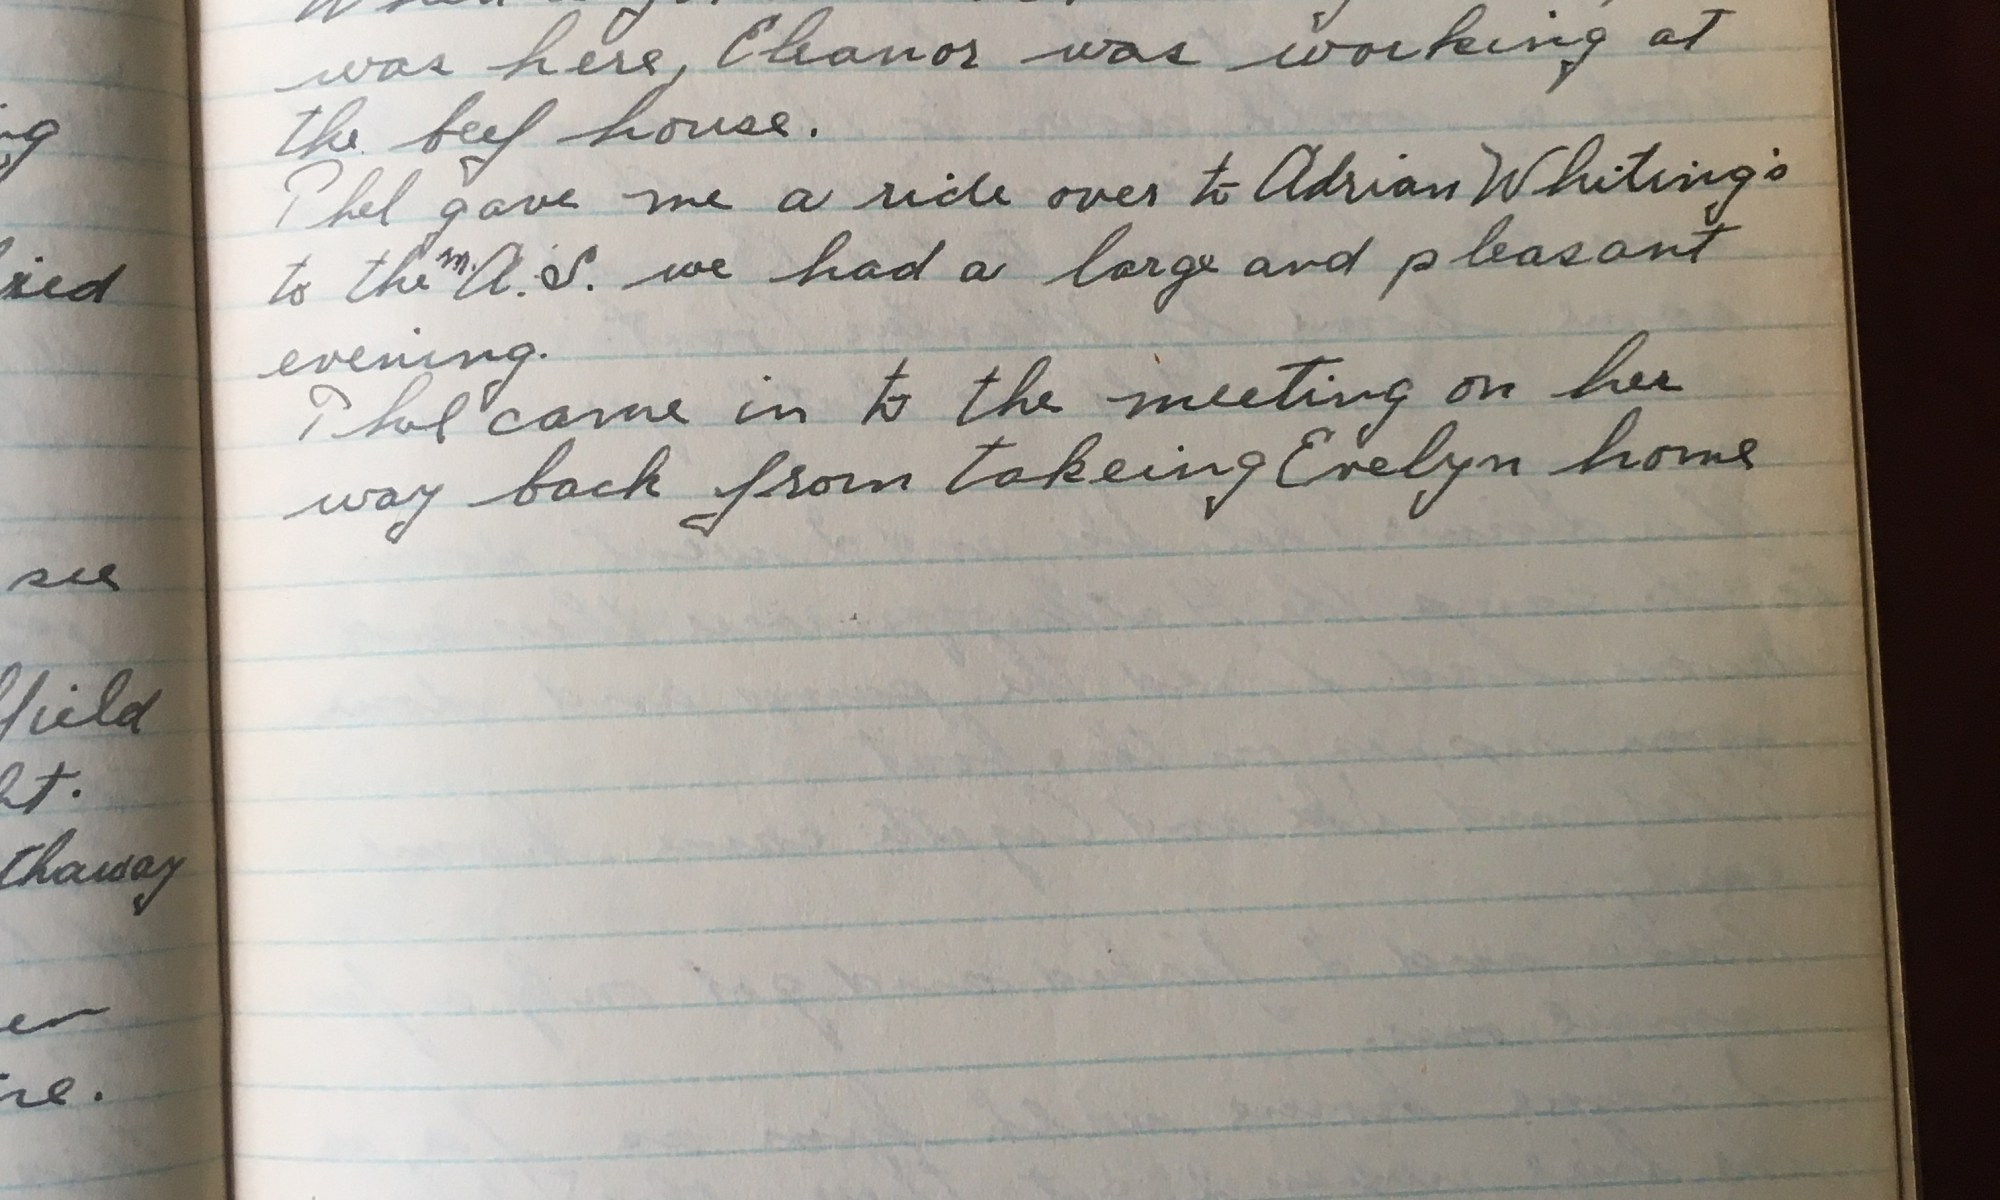 ng
ried
see
field
ht.
thaway
er
re.
was here, Eleanor was working at
the beef house.
Phel gave me a ride over to Adrian Whiting's
to the m. A. S. we had a large and pleasant
evening.
Phel came in to the meeting on her
way back from takeing Evelyn home